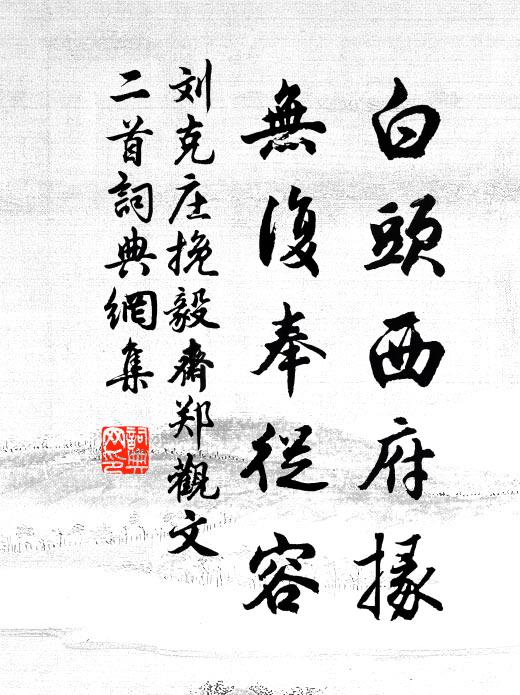 白頭西府掾
無復奉從容
刘克庄挽毅斋郑觀文
二首詞典網集
詞典网印